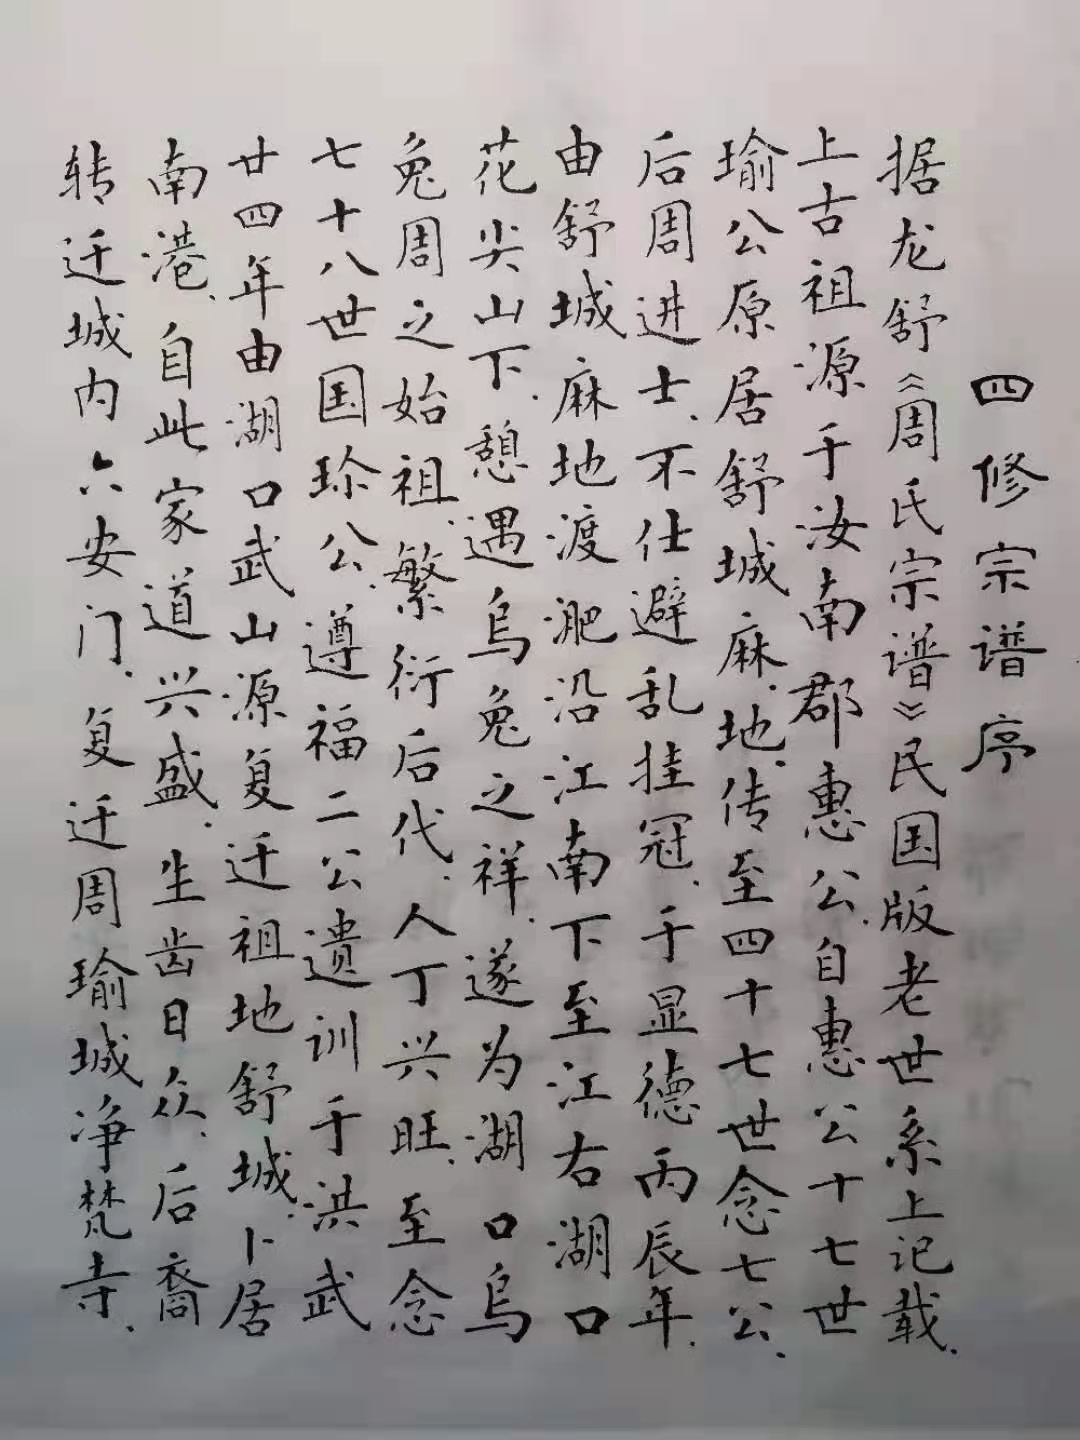 四修宗谱序
据龙舒《周氏宗谱》民国版老世系上记载.
上古祖源于汝南郡惠公.自惠公十七世
瑜公原居舒城麻.地.传至四十七世念七公.
后周进士.不仕避乱挂冠.于显德丙辰年.
由舒城麻地渡淝沿江南下至江右湖口
花尖山下.憩遇乌兔之祥.遂为湖口乌
兔周之始祖.繁衍后代.人丁兴旺.至念
七十八世国珍公.遵福二公遗训于洪武
廿四年由湖口武山源复迁祖地舒城.卜居
南港.自此家道兴盛.生齿日众.后裔
转迁城内六安门.复迁周瑜城净梵寺.